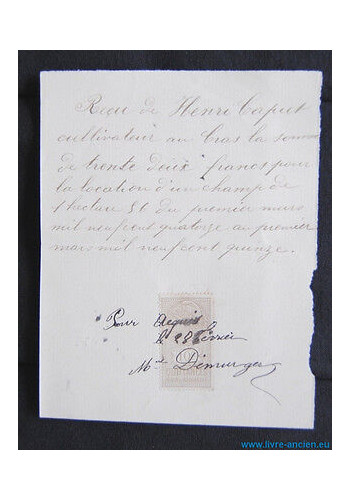 Recu de Henri Caput
cultivateur au Cras la somme
de trente deux francs pour
la location d'un champ de
1 hectare 50 du premier mars
mil neufcent quatorze au premier
mars mil neufcent quinze.
Pour Acquis
le 28 Février
Demurger
www.livre-ancien.eu